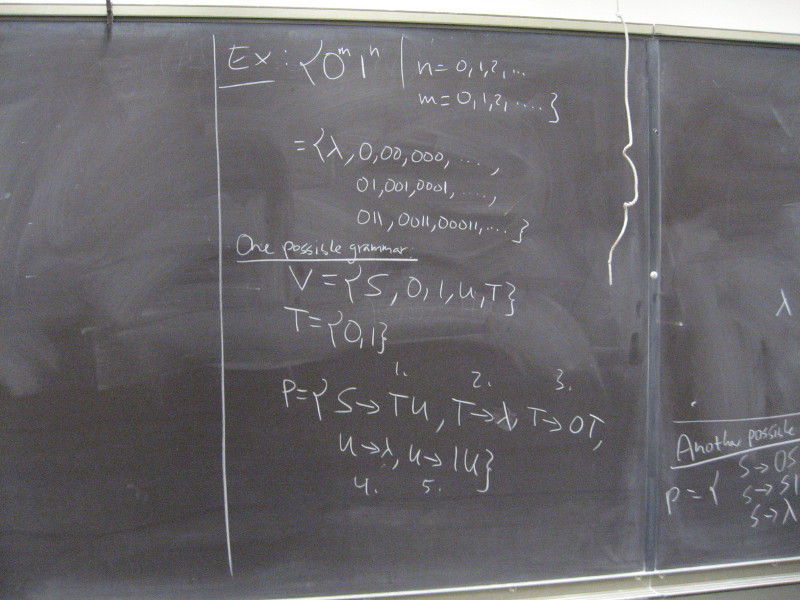 Ex: {0^m 1^n | n=0,1,2,...
m=0,1,2,....}
={λ,0,00,000,....,
01,001,0001,....,
011,0011,00011,....}
One possible grammar.
V={S,0,1,U,T}
T={0,1}
1. 2. 3.
P={S→TU, T→λ, T→0T,
U→λ, U→1U}
4. 5.
λ
Another possible
S→0S
P={ S→S1
S→λ